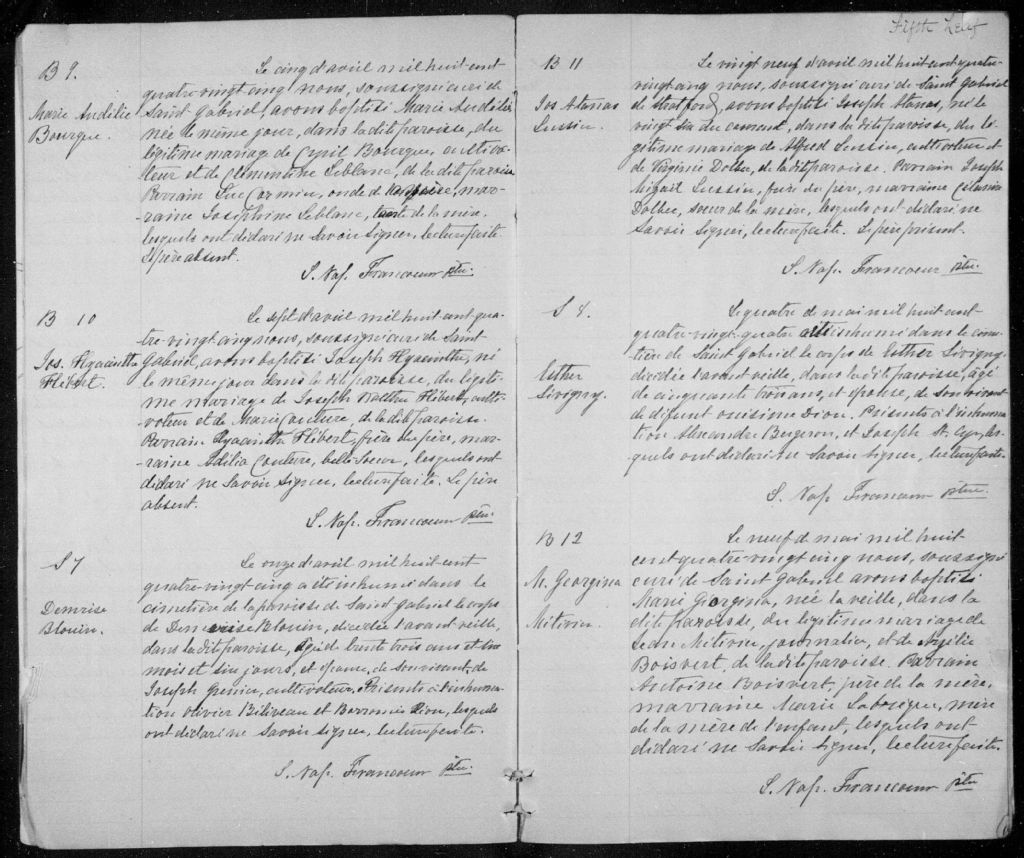 B 9.
Marie Audélie
Bourque.
Le cinq d'avril mil huit cent
quatre vingt cinq nous, soussigné curé de
Saint Gabriel, avons baptisé Marie Audélie
née le même jour, dans la dite paroisse, du
légitime mariage de Cyril Bourque, cultiva-
teur et de Leblanc, de la dite paroisse
Parrain Luc Cormier, oncle d mar-
raine Joséphine Leblanc, tante de la mère.
lesquels ont déclaré ne savoir signer, lecture faite.
Le père absent.
S. Nap. Francoeur ptre.
B 10
Jos. Hyacinthe
Hébert.
Le sept d'avril mil huit cent qua-
tre-vingt cinq nous, soussigné curé de Saint
Gabriel, avons baptisé Joseph Hyacinthe, né
le même jour dans la dite paroisse, du légiti-
me mariage de Joseph Hébert, culti-
vateur et de Marie Couture, de la dite paroisse.
Parrain Hyacinthe Hébert, frère du père, mar-
raine Adélia Couture, belle-soeur, lesquels ont
déclaré ne savoir signer, lecture faite. Le père
absent.
S. Nap. Francoeur ptre.
S 7
Demerise
Blouin.
Le onze d'avril mil huit cent
quatre-vingt cinq a été inhumé dans le
cimetière de la paroisse de Saint Gabriel le corps
de Demerise Blouin, décédée l'avant veille,
dans la dite paroisse, âgée de trente trois ans et
mois et six jours, et épouse, de son vivant, de
Joseph Grenier, cultivateur. Présents à l'inhuma-
tion Olivier Béliveau et Dion, lesquels
ont déclaré ne savoir signer, lecture faite.
S. Nap. Francoeur ptre.
Fifth Leaf
B 11
Jos Atanas
Lussier.
Le vingt neuf d'avril mil huit cent quatre-
vingt cinq nous, soussigné curé de Saint Gabriel
de Stratford, avons baptisé Joseph Atanas, né le
vingt six du courant, dans la dite paroisse, du lé-
gitime mariage de Alfred Lussier, cultivateur et
de Virginie Dolbec, de la dite paroisse. Parrain Joseph
Lussier, frère du père, marraine
Dolbec, soeur de la mère, lesquels ont déclaré ne
savoir signer, lecture faite. Le père présent.
S. Nap. Francoeur ptre
S 8.
Esther
Sévigny.
Le quatre de mai mil huit cent
quatre-vingt-quatre a été inhumé dans le cime-
tière de Saint Gabriel le corps de Esther Sévigny
décédée l'avant veille, dans la dite paroisse, âgé
de cinquante trois ans, et épouse, de son vivant
de défunt Onésime Dion. Présents à l'inhuma-
tion Alexandre Bergeron, et Joseph St. Cyr, les-
quels ont déclaré ne savoir signer, lecture faite.
S. Nap. Francoeur ptre.
B 12
M. Georgina
Métivier.
Le neuf de mai mil huit
cent quatre-vingt cinq nous, soussigné
curé de Saint Gabriel avons baptisé
Marie Georgina, née la veille, dans la
dite paroisse, du légitime mariage de
Métivier, journalier, et de
Boisvert, de la dite paroisse. Parrain
Antoine Boisvert, père de la mère,
marraine Marie Labrecque, mère
de la mère de l'enfant, lesquels ont
déclaré ne savoir signer, lecture faite.
S. Nap. Francoeur ptre